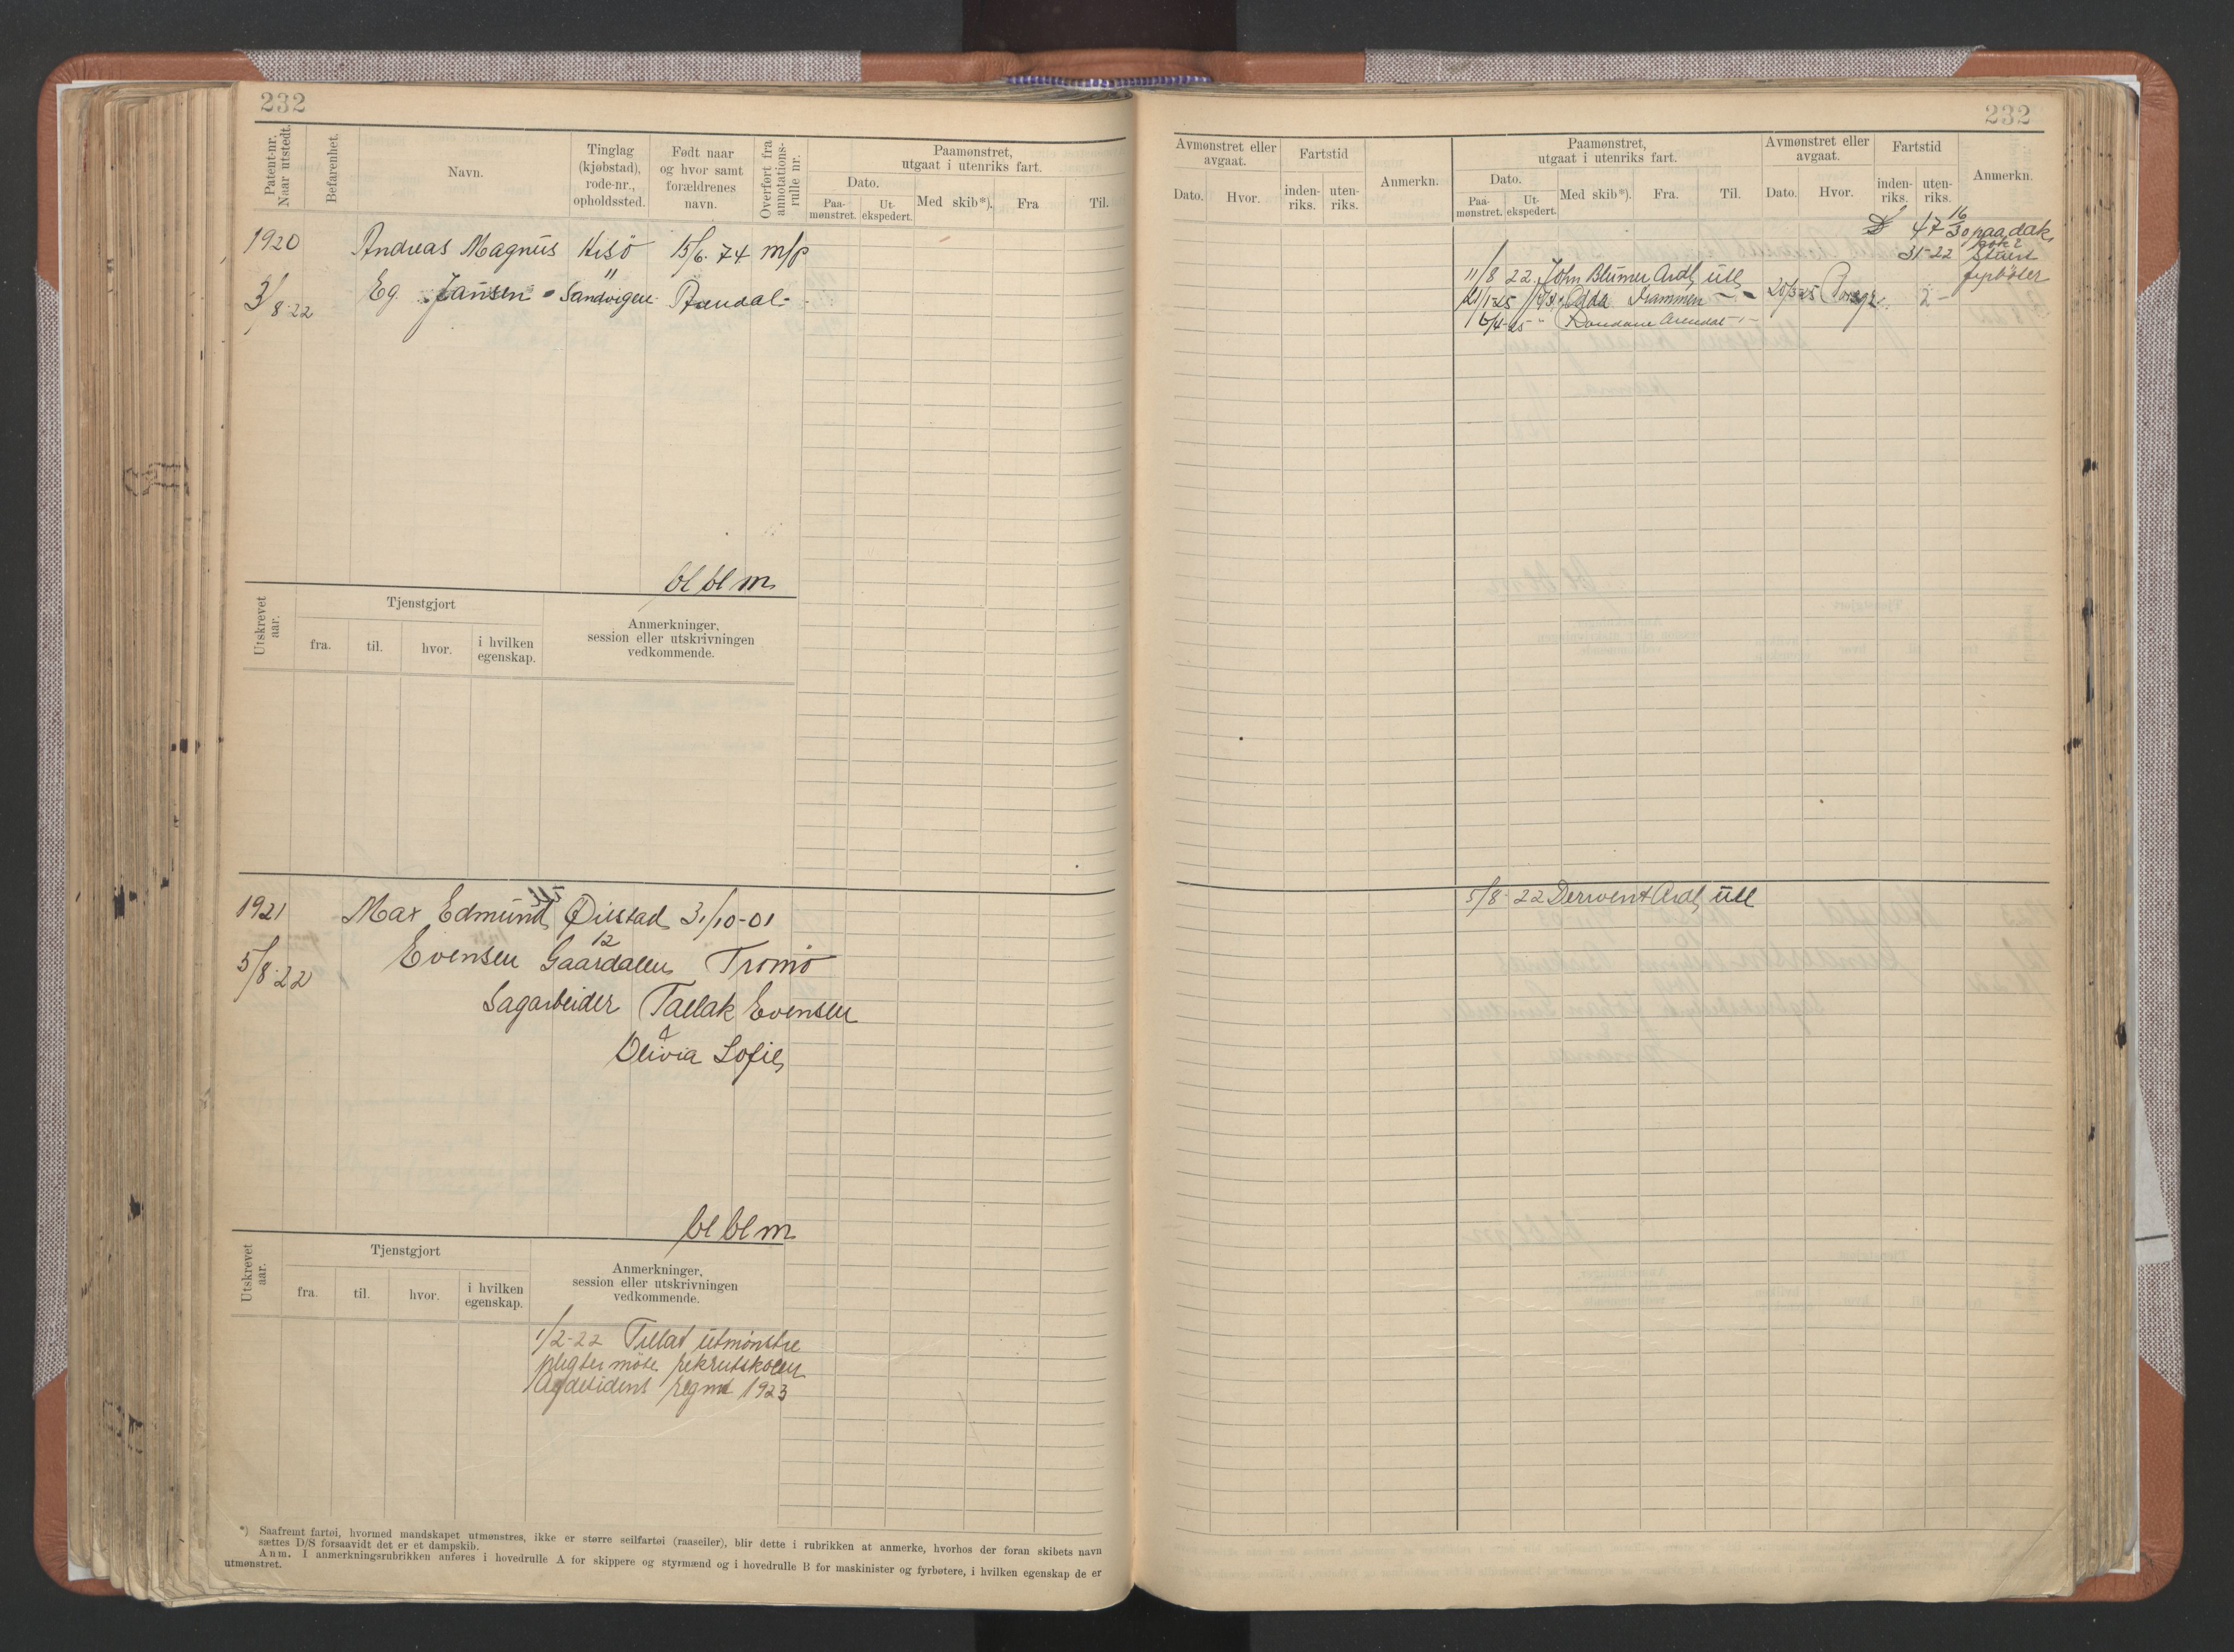 232
Patent-nr. Naar utstedt.
Befarenhet.
Navn.
Tinglag (kjøbstad), rode-nr., opholdssted.
Født naar og hvor samt forældrenes navn.
Overført fra annotations-rulle nr.
Paamønstret, utgaat i utenriks fart.
Dato.
Paa-mønstret.
Ut-ekspedert.
Med skib*).
Fra
Til.
1920 Andreas Magnus Hisö 15/6-74 m/p
3/8-22 Eg. Jansen Sandvigen Arendal
bl bl m
Utskrevet aar.
Tjenstgjort
fra. til. hvor. i hvilken egenskap.
Anmerkninger, session eller utskrivningen vedkommende.
1921 Max Edmund Øiestad 31/10-01
5/8-22 Evensen Gaardalen 12 Tromö
Sagarbeider Tallak Evensen
Olivia Sofie
bl bl m
Utskrevet aar.
Tjenstgjort
fra. til. hvor. i hvilken egenskap.
Anmerkninger, session eller utskrivningen vedkommende.
1/2-22 Tillat utmønstre
pligter möte rekrutskolen
Agdesidens regmt 1923
*) Saafremt fartøi, hvormed mandskapet utmønstres, ikke er større seilfartøi (raaseiler), blir dette i rubrikken at anmerke, hvorhos der foran skibets navn
sættes D/S forsaavidt det er et dampskib.
Anm. I anmerkningsrubrikken anføres i hovedrulle A for skippere og styrmænd og i hovedrulle B for maskinister og fyrbøtere, i hvilken egenskap de er
utmønstret.
232
Avmønstret eller avgaat.
Dato. Hvor.
Fartstid
inden-riks. uten-riks.
Anmerkn.
Paamønstret, utgaat i utenriks fart.
Dato.
Paa-mønstret. Ut-ekspedert.
Med skib*). Fra. Til.
Avmønstret eller avgaat.
Dato. Hvor.
Fartstid
inden-riks. uten-riks.
Anmerkn.
47 16/30 paa dæk
31-22
fyrbøter
11/8 22 John Blumer Ardl utl
Odda Drammen
Rondane Arendal
5/8-22 Derwent Ardl utl